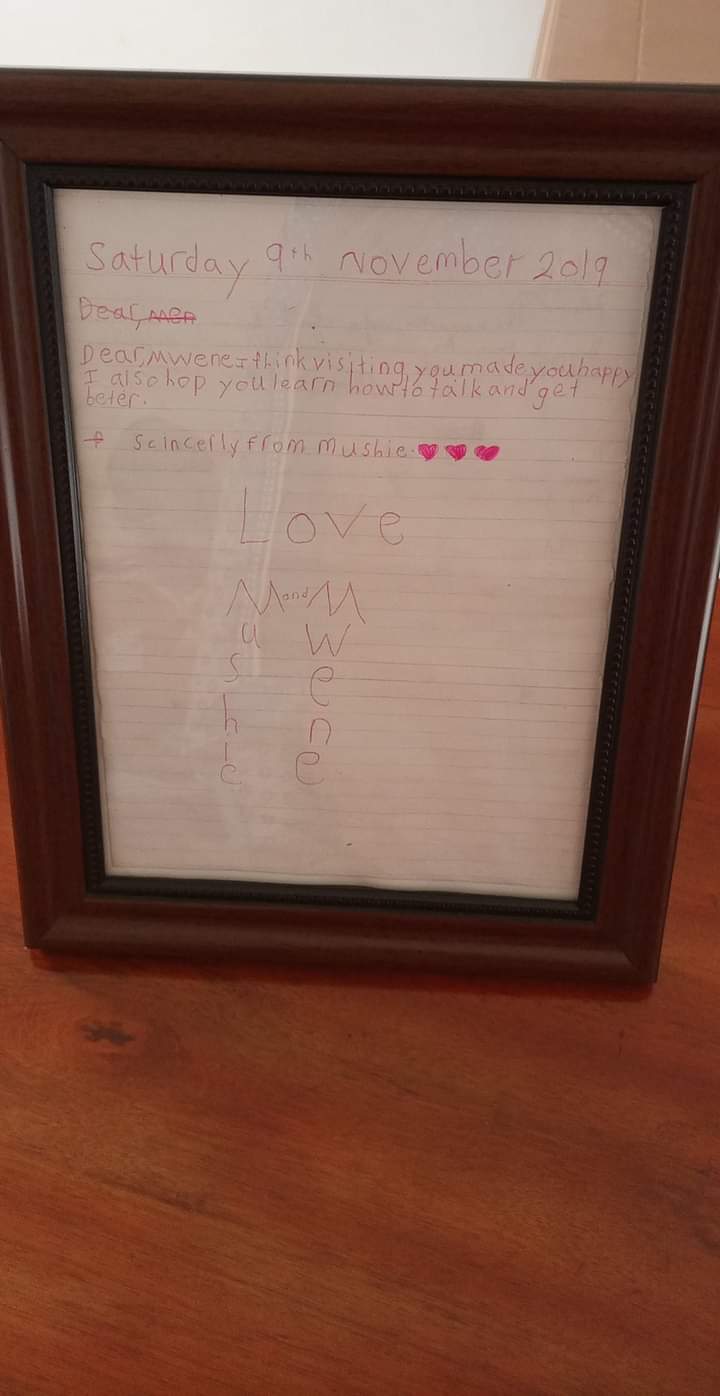 Saturday 9th November 2019
Dear, Men
Dear, Mwene I think visiting you made you happy
I also hop you learn how to talk and get
beter.
Scincerly from Mushie. ♥ ♥ ♥
Love
M and M
u w
s e
h n
i e
e